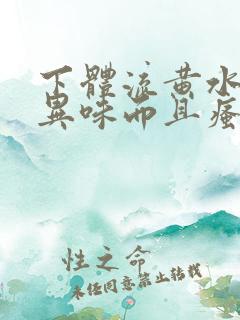 下體流黃水
異味而且瘙
性之命
未任同意禁止轉載